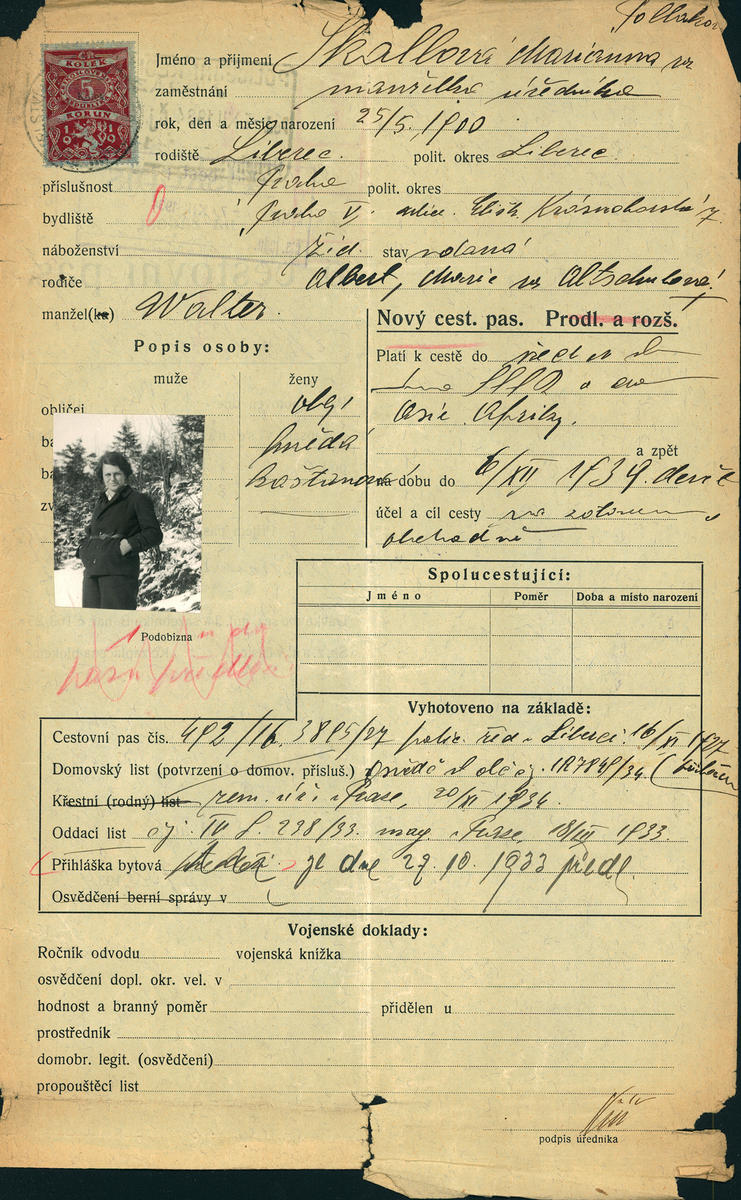 Pollakov
KOLEK
5
KORUN
1919
Jméno a příjmení Skallová Marianna roz
zaměstnání manželka úředníka
rok, den a měsíc narození 25/5. 1900
rodiště Liberec. polit. okres Liberec
příslušnost Praha polit. okres
bydliště 0 Praha V, ulice Elišk. Krásnohorské 7.
náboženství žid. stav vdaná
rodiče Albert, Marie roz Altschulová
manžel(ka) Walter.
Nový cest. pas. Prodl. a rozš.
Popis osoby:
Platí k cestě do
muže ženy
a
obličej obl.
Asie. Afriky.
hnědá
a zpět
kaštanové
na dobu do 6/XII 1939.
účel a cíl cesty
obchodně
Spolucestující:
Jméno Poměr Doba a místo narození
Podobizna
Vyhotoveno na základě:
Cestovní pas čís. 492/16. 3895/27 polic. řed v Liberci 16/XI 1927
Domovský list (potvrzení o domov. přísluš.) 127849/34
Křestní (rodný) list zem. úř. v Praze, 20/XI 1934
Oddací list čj. IV 238/33. mag v Praze, 18/III 1933
Přihláška bytová je dne 27. 10. 1933 předl.
Osvědčení berní správy v
Vojenské doklady:
Ročník odvodu vojenská knížka
osvědčení dopl. okr. vel. v
hodnost a branný poměr přidělen u
prostředník
domobr. legit. (osvědčení)
propouštěcí list
podpis úředníka